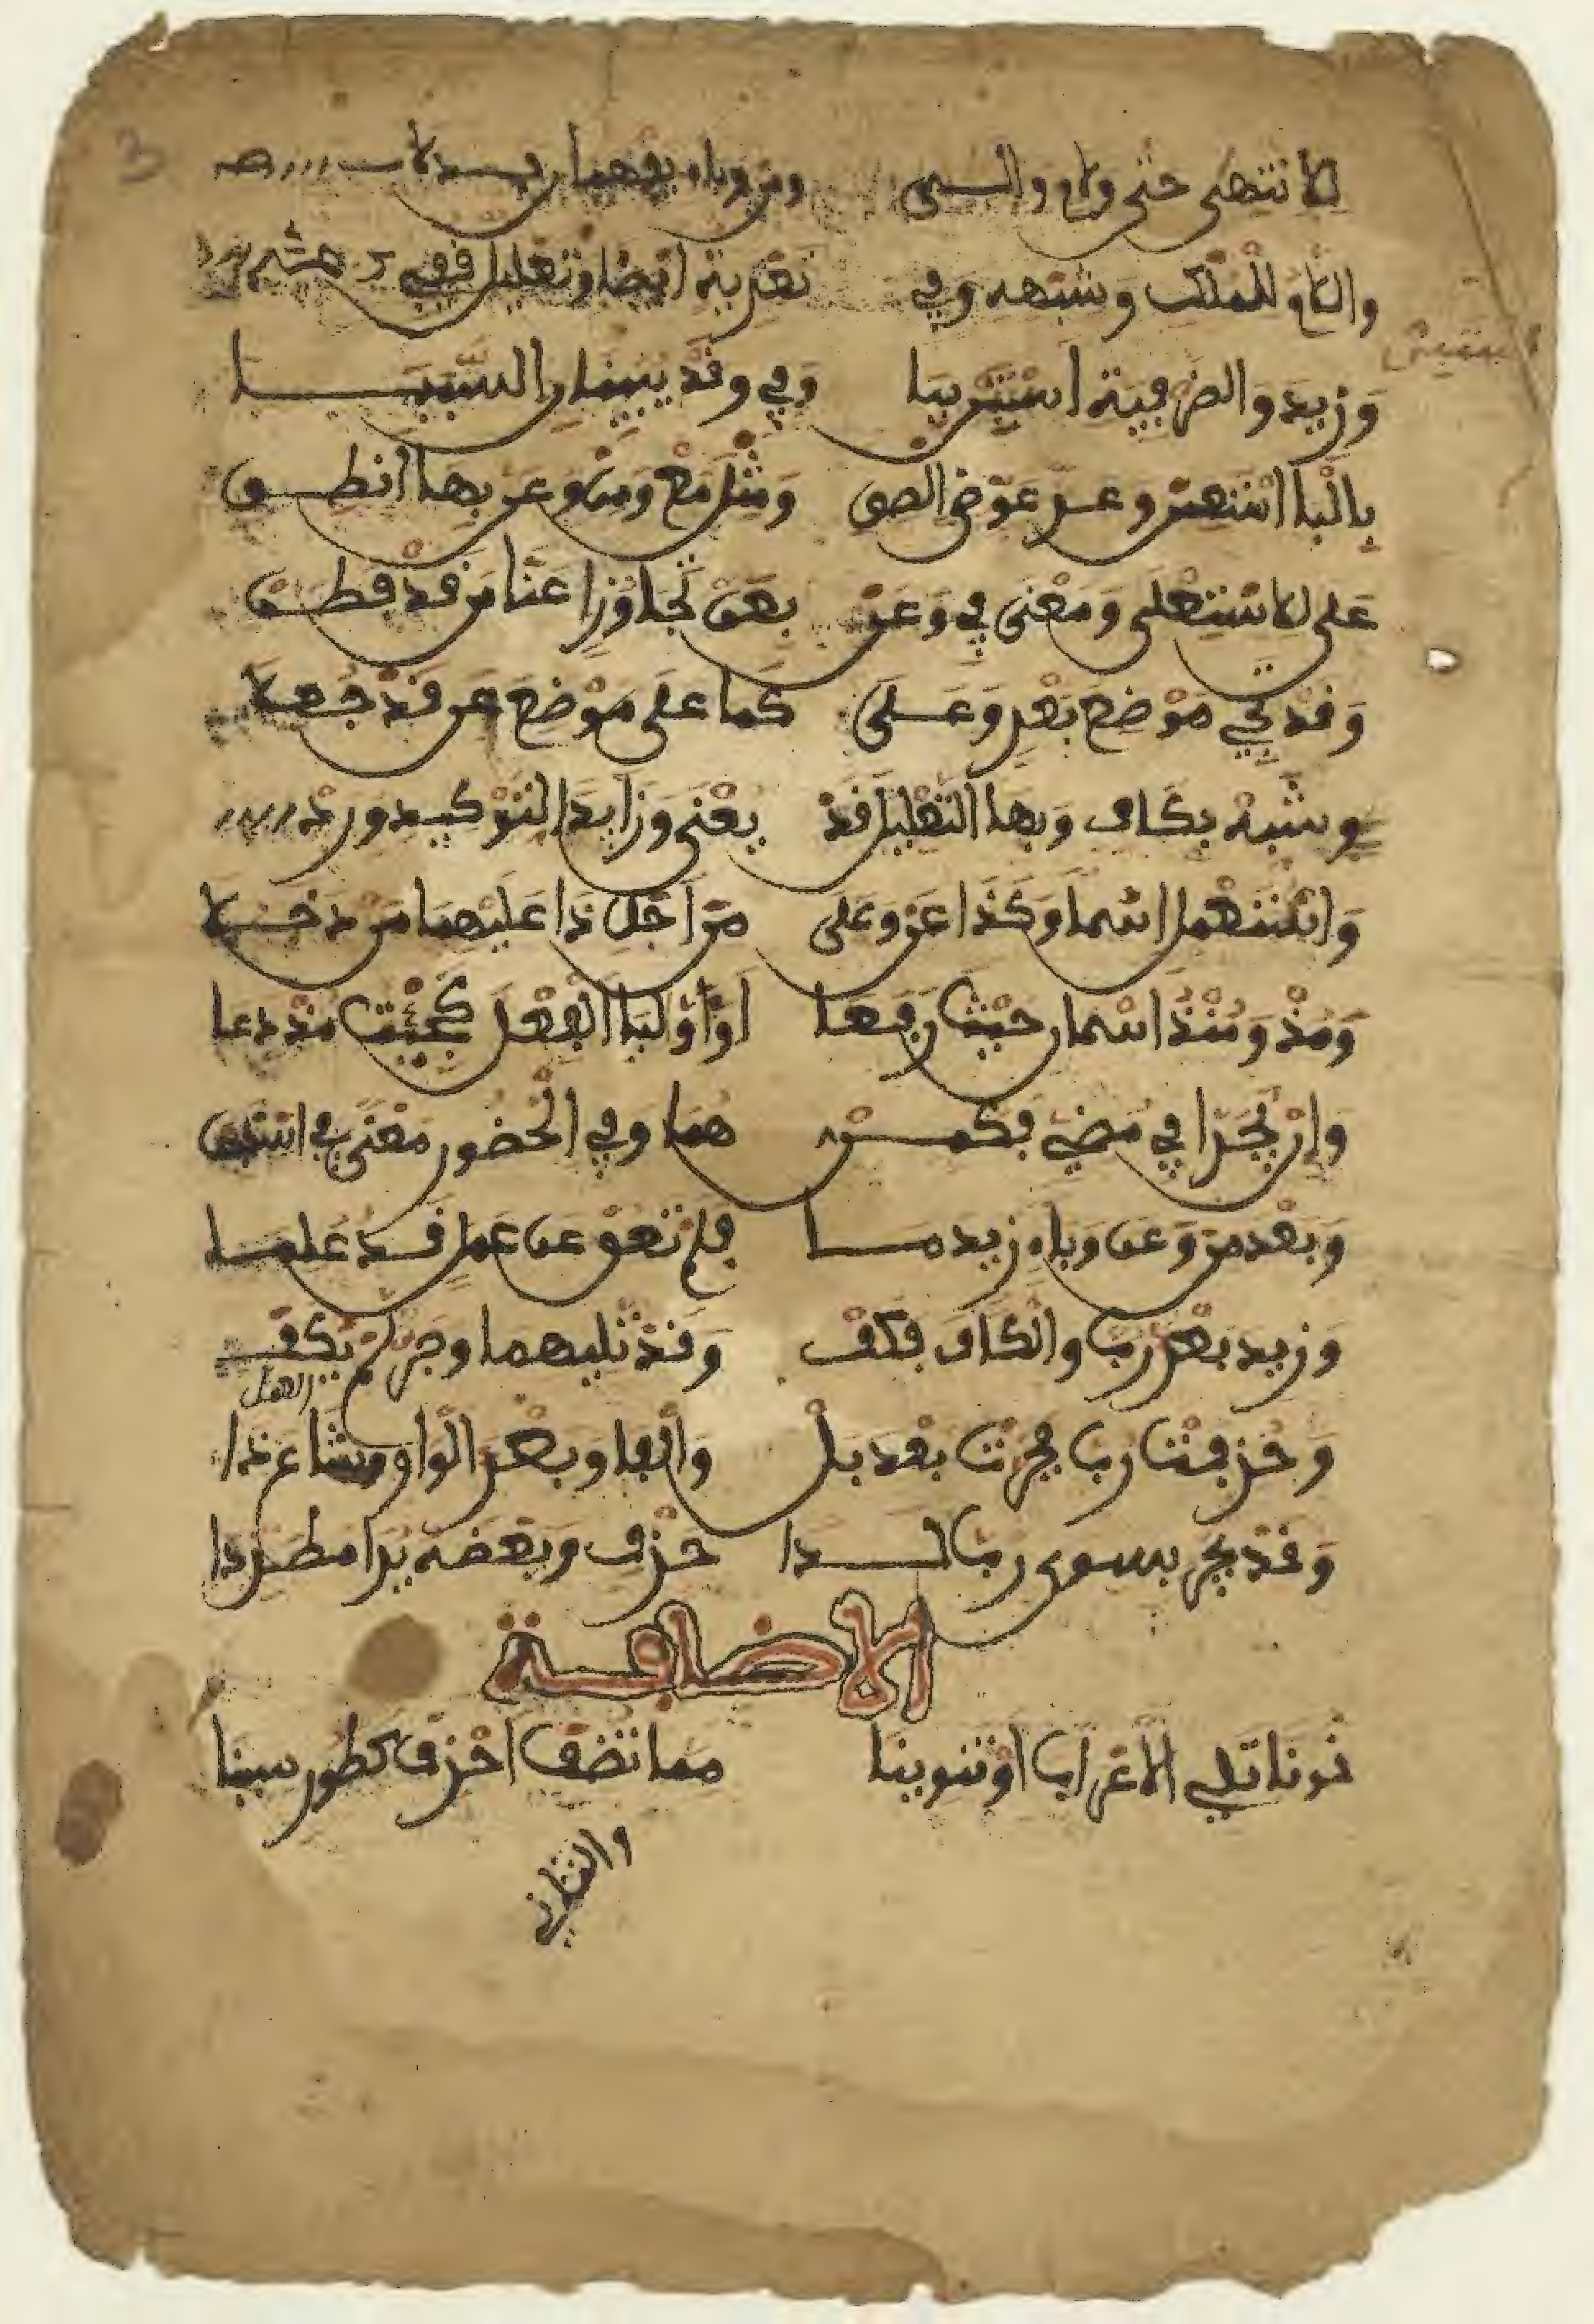 للانتها حتى ولام والى ومن وباء يفهمان بدلا
واللام للملك وشبهه وفي تعدية ايضا وتعليل قفي
وَزيد والظرفية استبن ببا وَفي وقد يبينان السببا
بالبا استعن وعد عوض الصق وَمثل مع ومن وعن بها انطق
على للاستعلى ومعنى في وَعن بعن تجاوزا عنا من قد فطن
وَقد تجي موضع بعد وَعلى كما على موضع عن قد جعلا
وشبه بكاف وبها التعليل قد يعنى وزايدا لتوكيد ورد
وَاستعمل اسما وَكذا عن وعلى من اجل ذا عليهما من دخلا
وَمذ وَمنذ اسمان حيث رفعا اَو اوليا الفعل كجئت مذ دعا
وَإن يجرا في مضي فكمن هما وفي الحضور معنى في استبن
وَبعد من وَعن وباء زيد ما فلم تعق عن عمل قد علما
وَزيد بعد رب والكاف فكف وَقد تليهما وجر لم يكف
العمل
وَحذفت رب فجرت بعد بل وَالفا وبعد الواو شاع ذا
وَقد يجر بسوى رب لدا حذف وبعضه يرا مطردا
الاضافة
نونا تلي الاعراب او تنوينا مما تضف احذف كطور سينا
والثاني